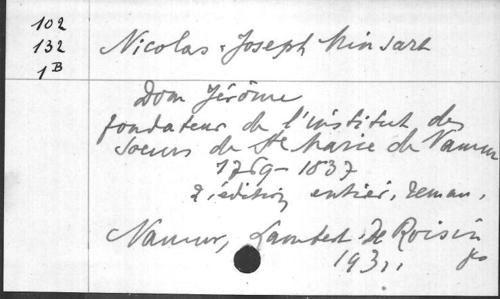 102
132
1B
Nicolas-Joseph Minsart
Dom Jérôme
fondateur de l'institut des
soeurs de Ste Marie de Namur
1769-1837
2e édition entièr. reman.
Namur, Lambert-De Roisin
1931,